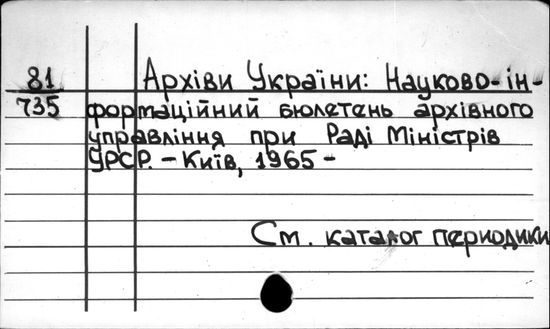 81 Архіви України: Науково-ін-
735 формаційний бюлетень архівного
управління при Раді Міністрів
УРСР. - Київ, 1965 -
См. каталог периодики